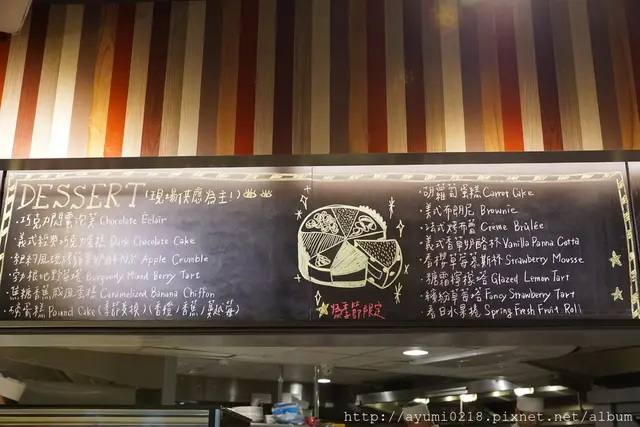 DESSERT (現場供應為主!)
·巧克力閃電泡芙 Chocolate Éclair
·義式經典巧克力蛋糕 Dark Chocolate Cake
·紐約風 蘋果奶酥 N.Y. Apple Crumble
Burgundy Mixed Berry Tart
·焦糖香蕉戚風蛋糕 Caramelized Banana Chiffon
·磅蛋糕 Pound Cake (季節 ) (香橙) (香蕉) (蔓越莓)
季節限定
·胡蘿蔔蛋糕 Carrot Cake
·美式布朗尼 Brownie
·法式烤布蕾 Crème Brûlée
·義式香草奶酪杯 Vanilla Panna Cotta
·春櫻草莓慕斯杯 Strawberry Mousse
·糖霜檸檬塔 Glazed Lemon Tart
·繽紛草莓塔 Fancy Strawberry Tart
·春日水果捲 Spring Fresh Fruit Roll
http://ayumi0218.pixnet.net/album